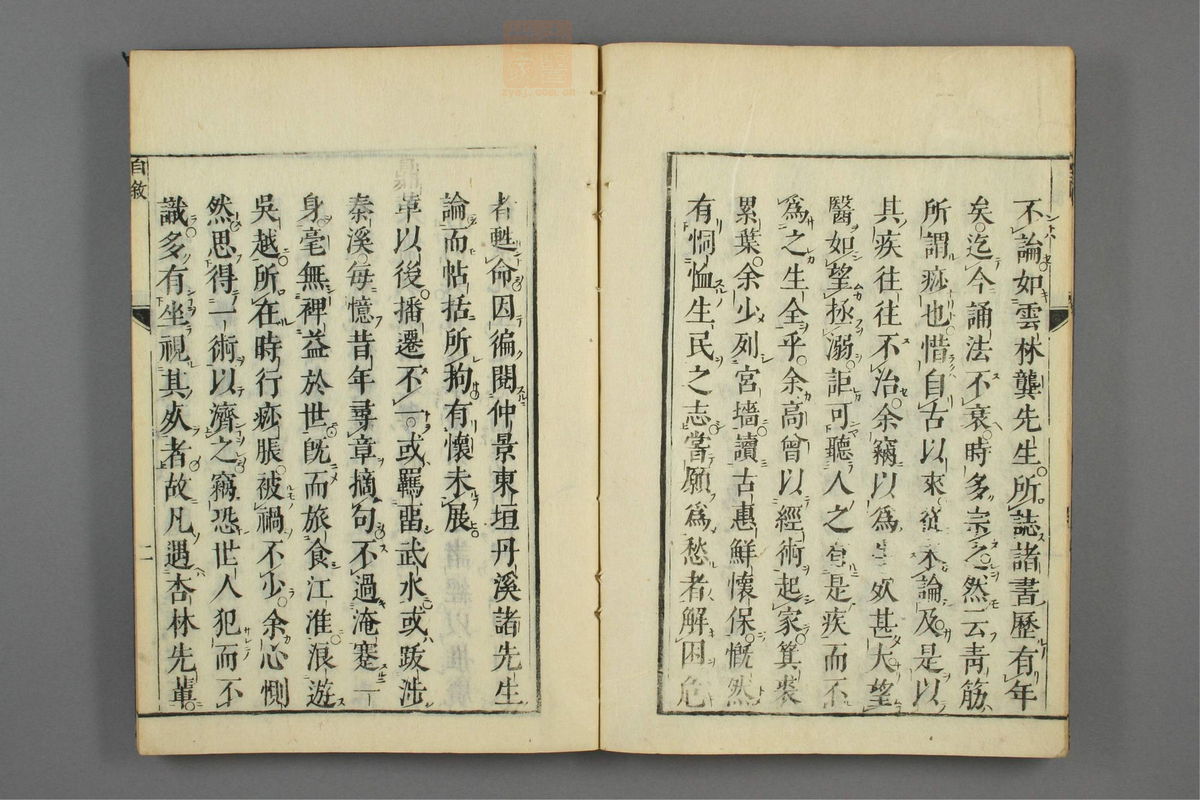 不論如雲林龔先生所誌諸書歷有年
矣迄今誦法不衰時多宗之然云青筋
所謂痧也惜自古以來從未論及是以
其疾往往不治余竊以為生死甚大望
醫如望拯溺詎可聽人之有是疾而不
為之生全乎余高曾以經術起家箕裘
累葉余少列宮墻讀古惠鮮懷保慨然
有恫恤生民之志嘗願為愁者解困危
者甦命因徧閱仲景東垣丹溪諸先生
論而帖括所拘有懷未展
革以後播遷不一或羈畱武水或跋涉
秦溪每憶昔年尋章摘句不過淹蹇一
身毫無裨益於世既而旅食江淮浪遊
吳越所在時行痧脹被禍不少余心惻
然思得一術以濟之竊恐世人犯而不
識多有坐視其死者故凡遇杏林先輩
自敘
二